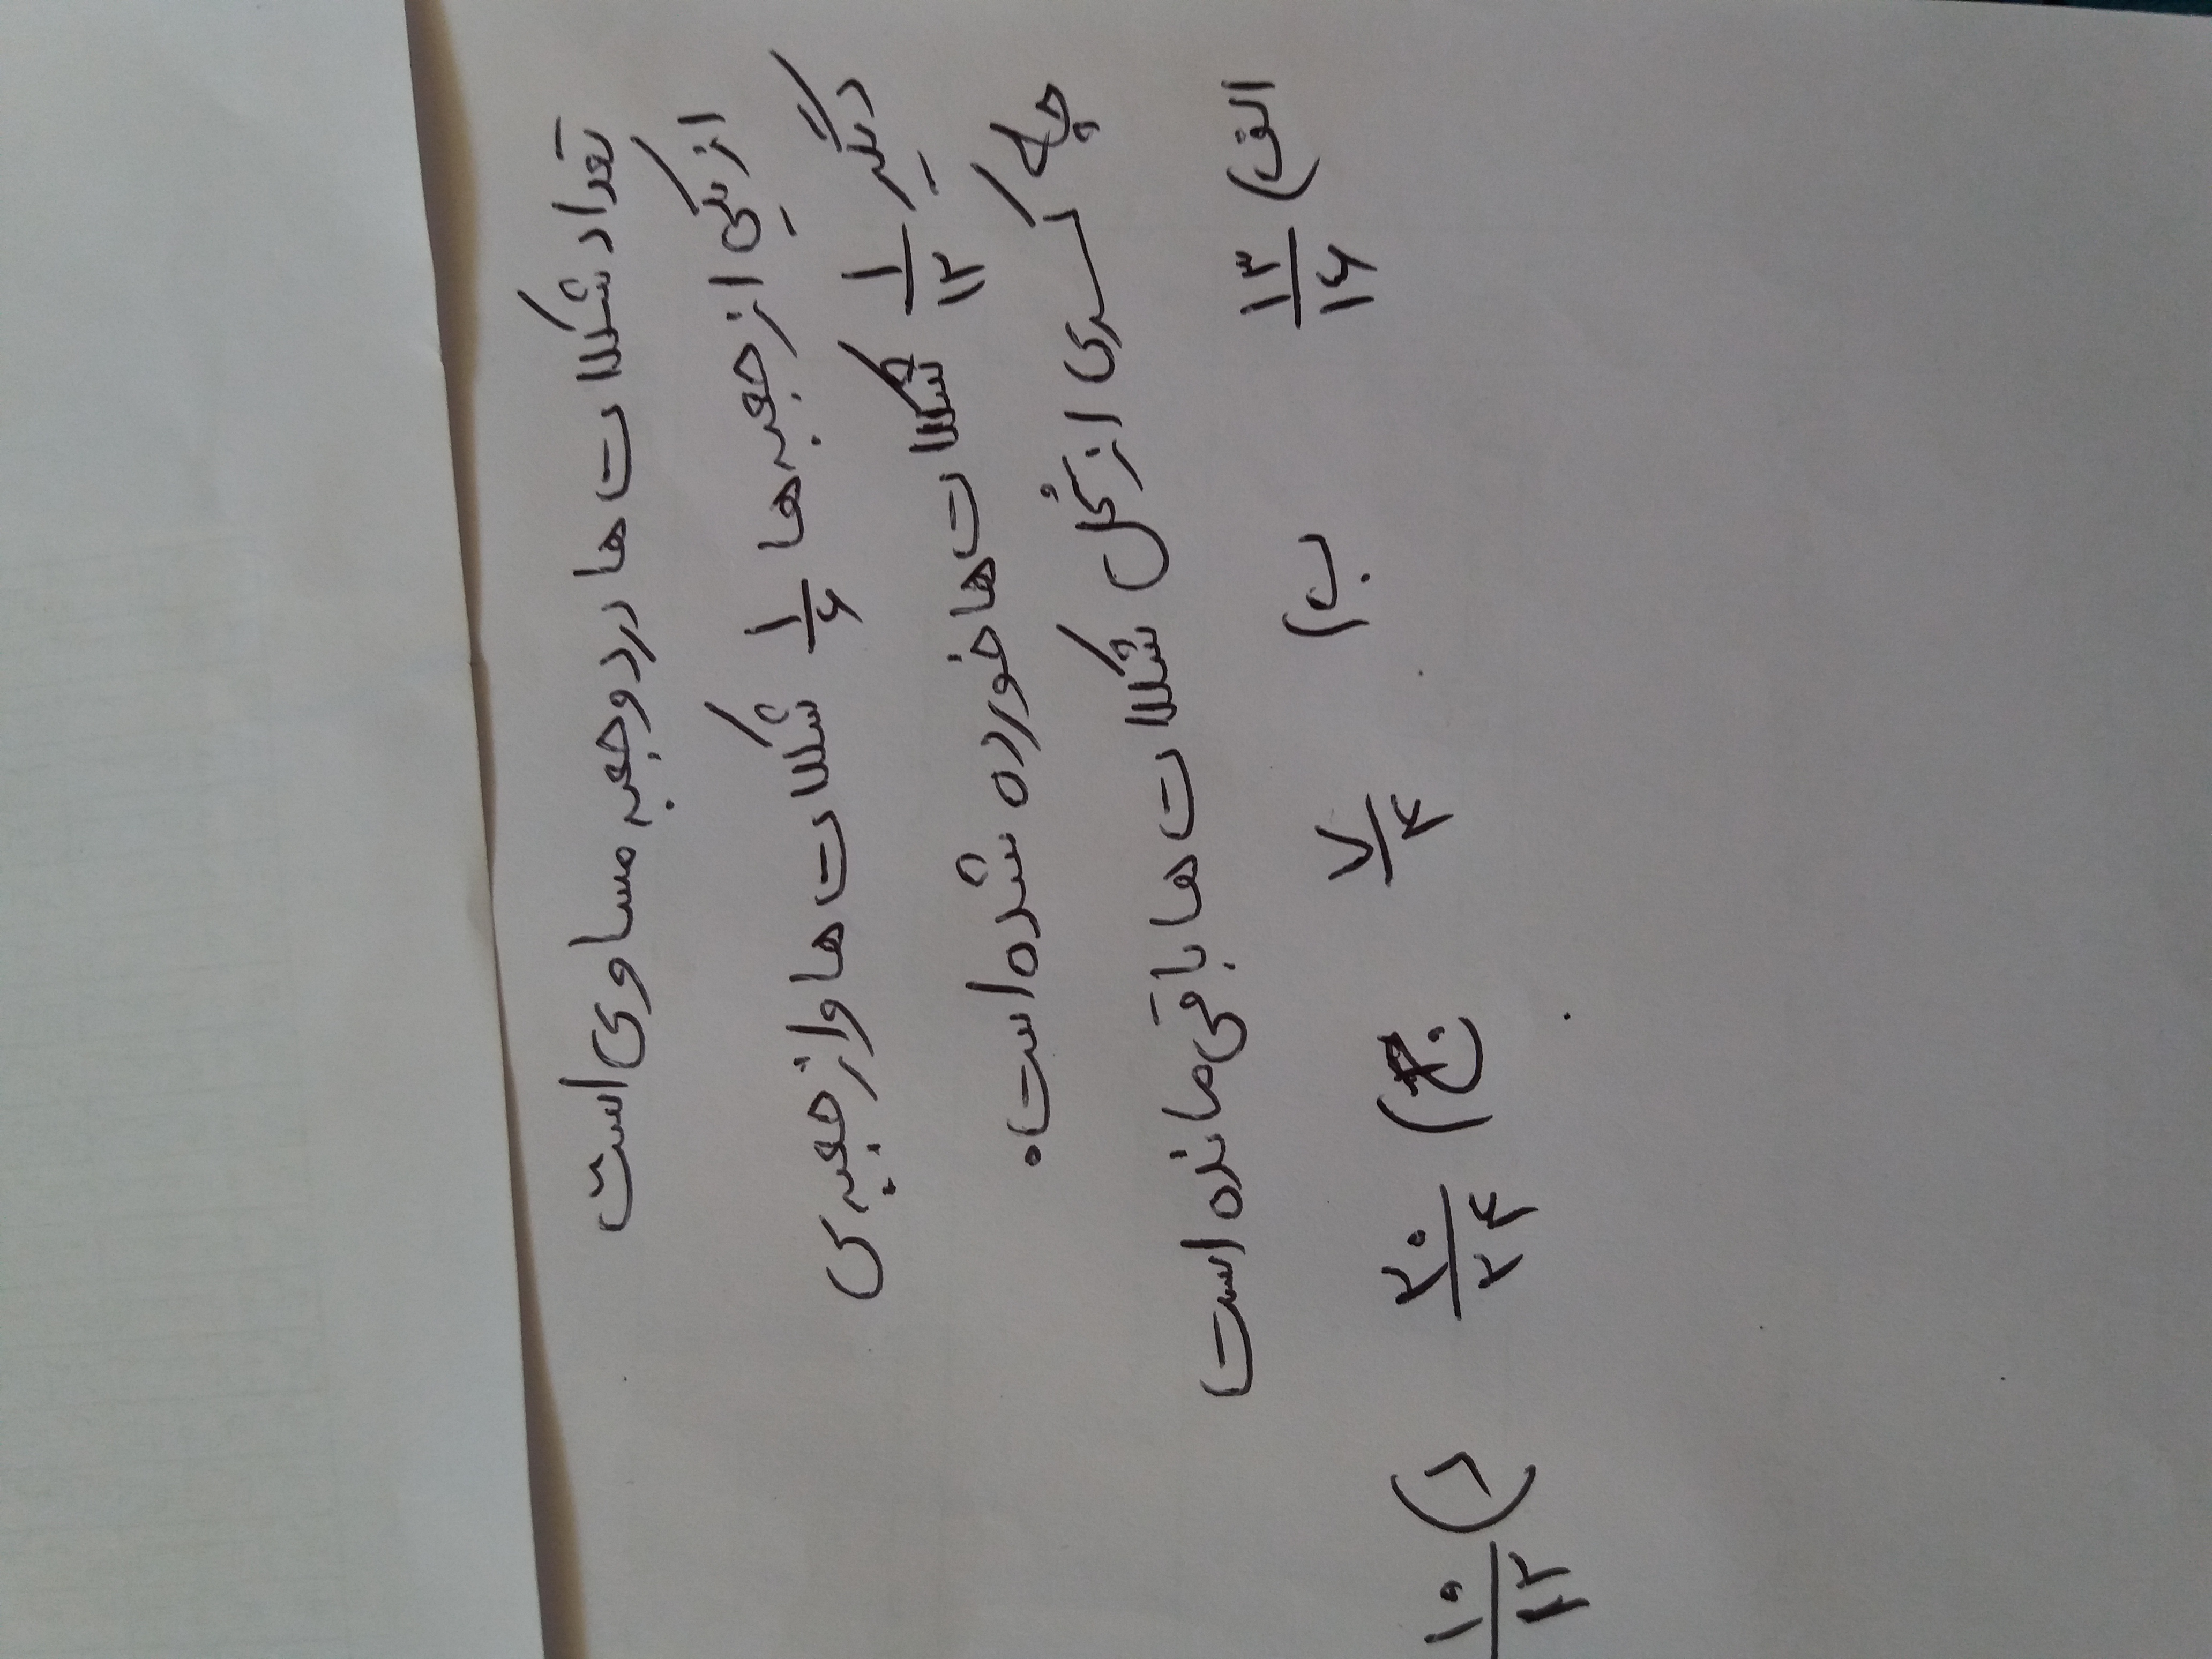 تعداد شکلات ها در دو جعبه مساوی است
از یکی از جعبه ها ۱/۶ شکلات ها و از جعبه ی
دیگر ۱/۱۲ شکلات ها خورده شده است.
چه کسری از کل شکلات ها باقی مانده است
الف) ۱۳/۱۶ ب) ۷/۴ ج) ۲۰/۲۴ د) ۱۰/۱۲